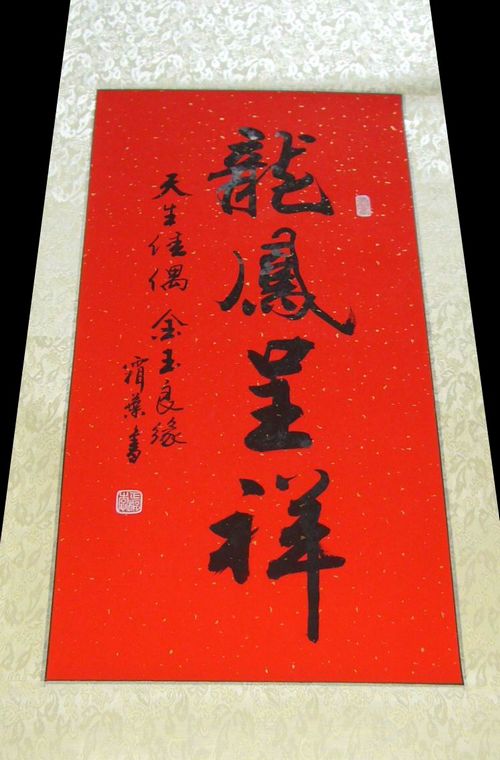 龍鳳呈祥
天生佳偶 金玉良緣
葉書